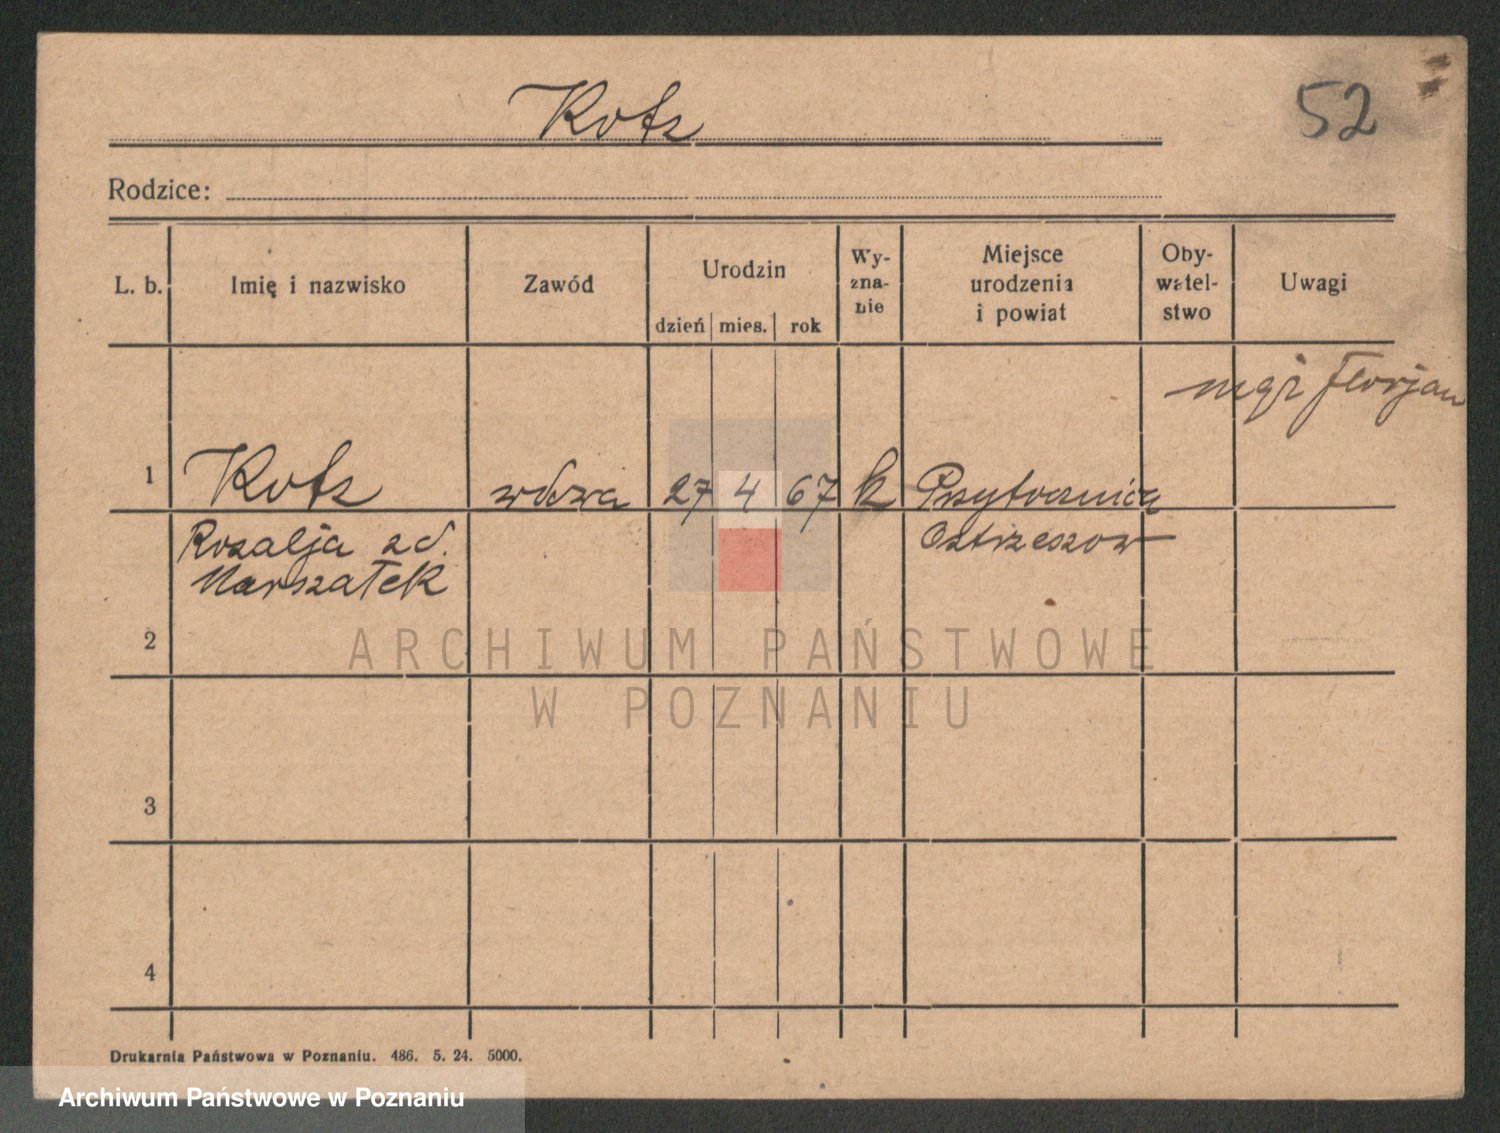 Kots
52
Rodzice:
L. b.
Imię i nazwisko
Zawód
Urodzin
dzień mies. rok
Wy-
zna-
nie
Miejsce
urodzenia
i powiat
Oby-
watel-
stwo
Uwagi
Florjan
1 Kots wdowa 27 4 67 k Przytocznica
Rozalja zd. Ostrzeszow
Marszałek
2
ARCHIWUM PAŃSTWOWE
W POZNANIU
3
4
Drukarnia Państwowa w Poznaniu. 486. 5. 24. 5000.
Archiwum Państwowe w Poznaniu